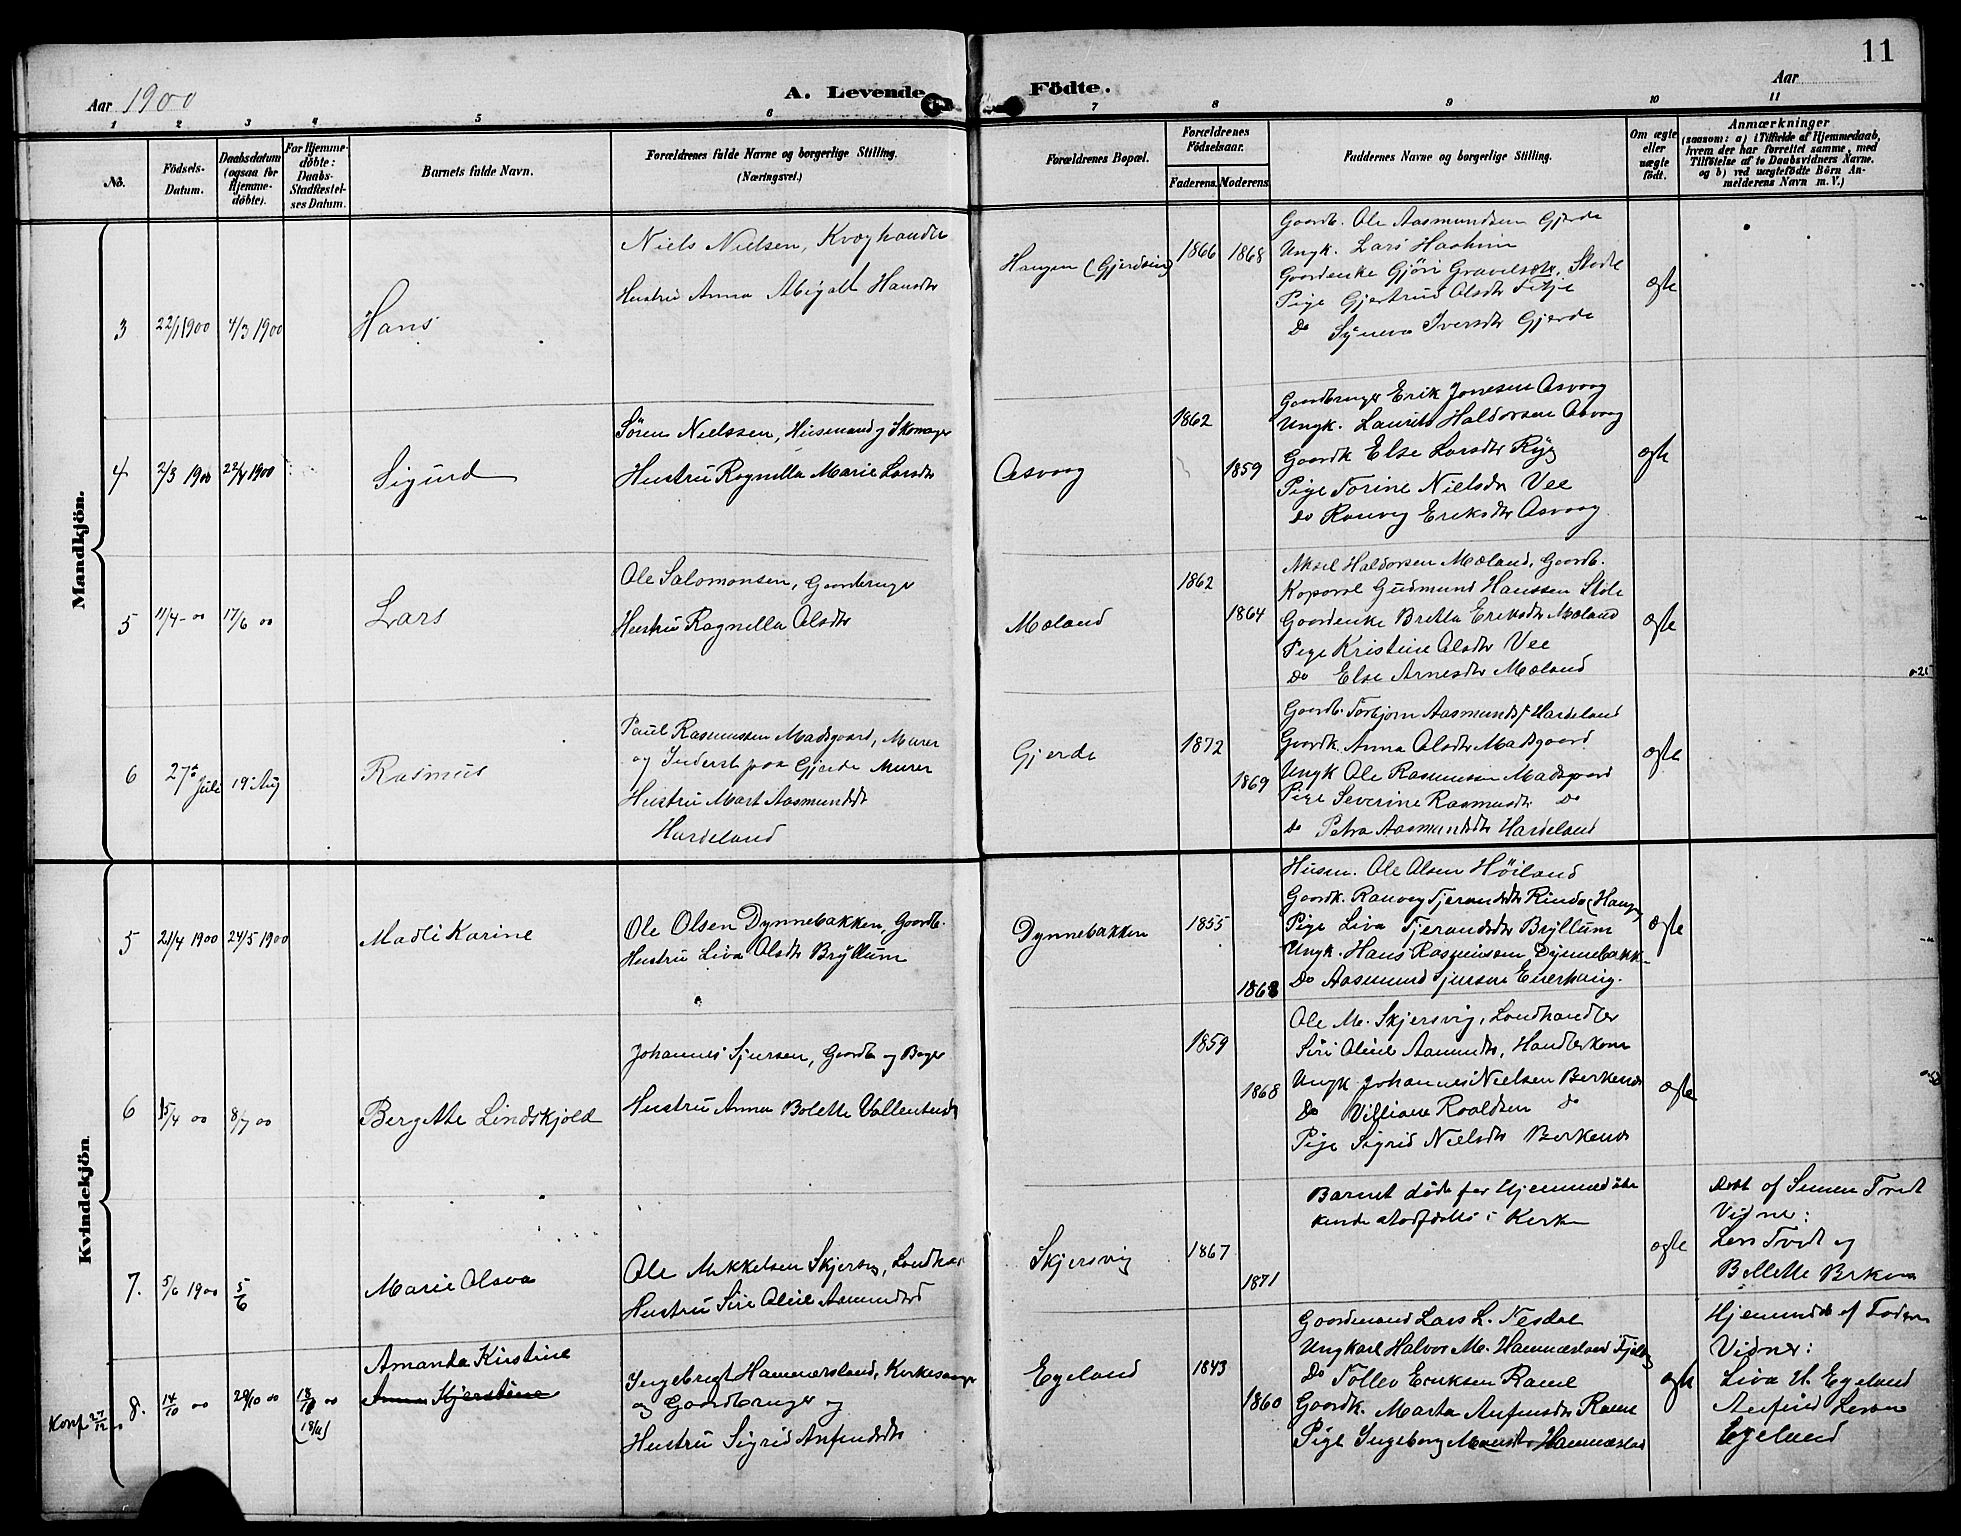 11
Aar 1900
A. Levende
Födte.
Aar
1 2 3 4 5 6 7 8 9 10 11
No.
Födsels-Datum.
Daabsdatum (ogsaa for Hjemme-döbte).
For Hjemme-döbte: Daabs-Stadfæstel-ses Datum.
Barnets fulde Navn.
Forældrenes fulde Navne og borgerlige Stilling. (Næringsvei.)
Forældrenes Bopæl.
Forældrenes Födselsaar.
Faderens.
Moderens.
Faddernes Navne og borgerlige Stilling.
Om ægte eller uægte födt.
Anmærkninger
(saasom: a) i Tilfælde af Hjemmedaab, hvem der har forrettet samme, med Tilföielse af to Daabsvidners Navne. og b) ved uægtefödte Börn An-melderens Navn m. V.)
Mandkjön.
3
22/1 1900
4/3 1900
Hans
Niels Nielsen, Kvæghandler
Hustru Anna Abigael Hansdtr
Haugen (Gjerdsvig)
1866
1868
Gaardb. Ole Aasmundsen Gjerde
Ungk. Lars Haaheim
Gaardenke Gjöri Gravelsdtr. Stole
Pige Gjertrud Olsdtr Fitje
Do Synева Iversdtr Gjerde
ægte
4
2/3 1900
22/4 1900
Sigurd
Sören Nielssen, Husmand og Skomager
Hustru Ragnilla Marie Larsdtr
Asvaag
1862
1859
Gaardbruger Erik Jonesen Asvaag
Ungk. Laurits Haldorsen Asvaag
Gaardk Else Larsdtr Ryg
Pige Torine Nielsdtr Vee
Do Ranveg Eriksdtr Asvaag
ægte
5
11/4 - 00
17/6 00
Lars
Ole Salomonsen, Gaardbruger
Hustru Ragnilla Olsdtr
Mæland
1862
1864
Aksel Haldorsen Mæland, Gaardb.
Koporal Gudmund Hanssen Stole
Gaardenke Britta Eriksdtr Mæland
Pige Kristine Olsdtr Vee
Do Else Arnesdtr Mæland
ægte
6
27de Juli
19 Aug
Rasmus
Paul Rasmussen Madsgaard, Murer
og Inderst paa Gjerde Murer
Hustru Mart Aasmundsdt
Hardeland
Gjerde
1872
1869
Gaardb. Torbjorn Aasmunds. Hardeland
Gaardk. Anna Olsdtr Madsgaard
Ungk Ole Rasmussen Madsgaard
Pige Severine Rasmusdtr Do
Do Petra Aasmundsdtr Hardeland
ægte
Kvindekjön.
5
21/4 1900
24/5 1900
Madli Karine
Ole Olsen Dynnebakken, Gaardb.
Hustru Liva Olsdtr Bryllum
Dynnebakken
1855
1868
Husm. Ole Olsen Höiland
Gaardk. Ranveg Tjerandsdtr Rinde (Haugen)
Pige Liva Tjerandsdtr Bryllum
Ungk. Hans Rasmussen Dynnebakk-
Do Aasmund Sjursen Enerhaug.
ægte
6
15/4 00
8/7 00
Bergette Lindskjold
Johannes Sjursen, Gaardb og Bager
Hustru Anna Bolette Vallentinsd
1859
1868
Ole M. Skjersvig, Landhandler
Siri Oline Aamundsdtr, Handlerkone
Ungk Johannes Nielsen Berkenes
Do Villiam Roaldsen do
Pige Sigrid Nielsdtr Berkenes
ægte
7.
5/6 1900
5/6
Marie Olava
Ole Mikkelsen Skjersvig, Landhan
Hustru Siri Oline Aamundsd
Skjersvig
1867
1871
Barnet döde för Hjemmedåbe
kunde stadfæstes i Kirke
ægte
Döbt af Simen Tveit
Vidner:
Lars Tveit og
Bollette Birkenes
Konf 27/12
8.
14/10 00
28/10 00
18/11 00
(18/11)
Amanda Kirstine
Anna Kjerstine
Ingebrigt Hammersland, Kirkesanger
og Gaardbruger og
Hustru Sigrid Anfinsdtr
Egeland
1843
1860
Gaardmand Lars L. Nesdal
Ungkarl Halvor M. Hammersland Fjelberg
Do Tollev Eriksen Ramе
Gaardk. Marta Anfinsdtr Rame
Pige Ingeborg Monsdtr Hammersland
ægte
Hjemmdöbt af Faderen
Vidner:
Liva H. Egeland
Anfind Larsen
Egeland